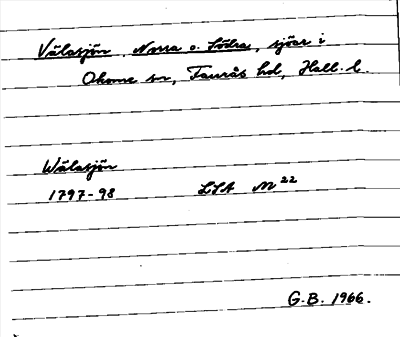 Välasjön, Norra o. Södra, sjöar i
Okome sn, Faurås hd, Hall. l.
Wälasjön
1797-98 LSA N 22
G.B. 1966.